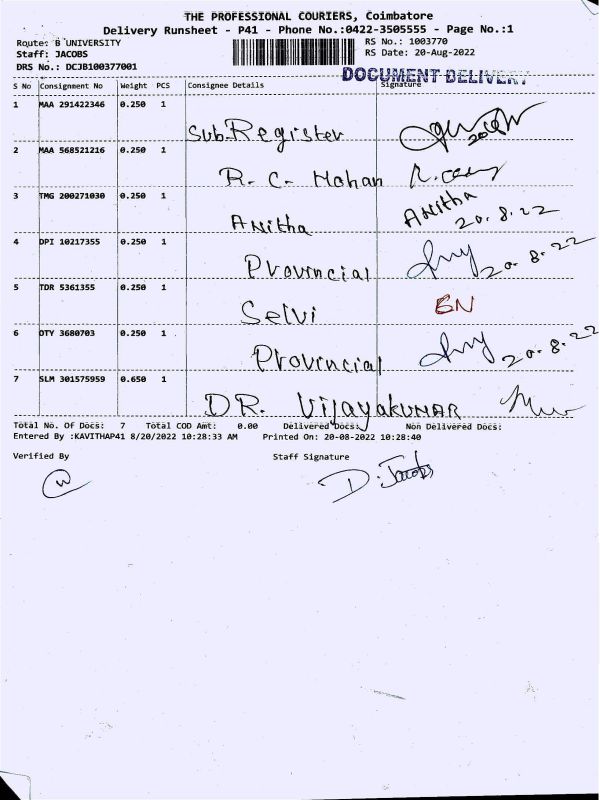 THE PROFESSIONAL COURIERS, Coimbatore
Delivery Runsheet - P41 - Phone No.:0422-3505555 - Page No.:1
Route: B UNIVERSITY RS No.: 1003770
Staff: JACOBS RS Date: 20-Aug-2022
DRS No.: DCJB100377001
DOCUMENT DELIVERY
S No Consignment No Weight PCS Consignee Details Signature
1 MAA 291422346 0.250 1
Sub.Register
2 MAA 568521216 0.250 1
R. C. Mohan
3 TMG 200271030 0.250 1 Anitha
20.8.22
Anitha
4 DPI 10217355 0.250 1
Provincial 20.8.22
5 TDR 5361355 0.250 1
Selvi BN
6 DTY 3680703 0.250 1
Provincial 20.8.22
7 SLM 301575959 0.650 1
DR. Vijayakumar
Total No. Of Docs: 7 Total COD Amt: 0.00 Delivered Docs: Non Delivered Docs:
Entered By :KAVITHAP41 8/20/2022 10:28:33 AM Printed On: 20-08-2022 10:28:40
Verified By Staff Signature
D. Jacobs